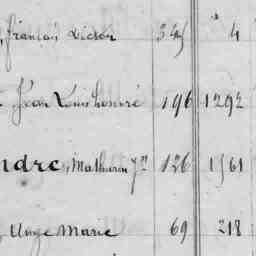 , françois Victor 345 4
Jean Louis honoré 196 1292
ndre, Mathurin Jn 126 1561
, Ange Marie 69 218